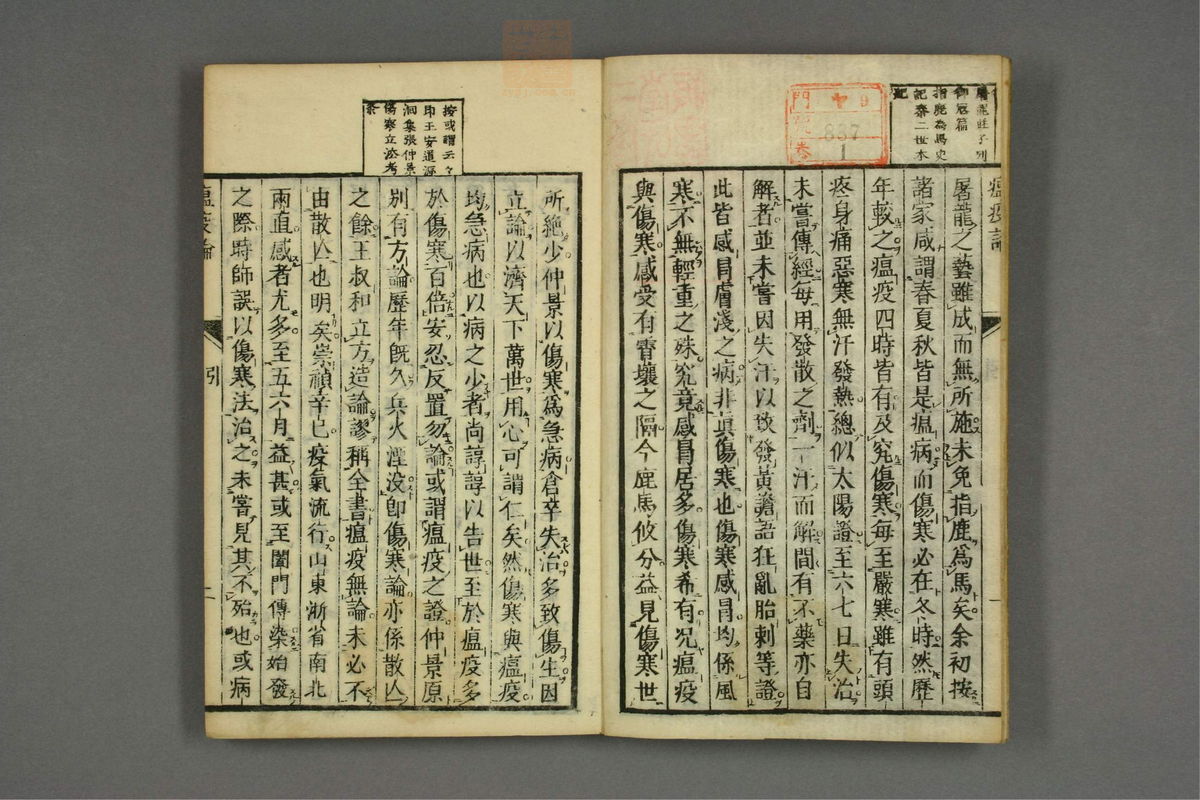 屠龍莊子列
御冦篇
指鹿為馬史
記秦二世本
紀
門
卷
9
837
1
瘟疫論
屠龍之藝雖成而無所施未免指鹿爲馬矣余初按
諸家咸謂春夏秋皆是瘟病而傷寒必在冬時然歷
年較之瘟疫四時皆有及究傷寒每至嚴寒雖有頭
疼身痛惡寒無汗發熱總似太陽證至六七日失治
未嘗傳經每用發散之劑一汗而解間有不藥亦自
解者並未嘗因失汗以致發黃譫語狂亂胎刺等證
此皆感冒膚淺之病非眞傷寒也傷寒感冒均係風
寒不無輕重之殊究竟感冒居多傷寒希有況瘟疫
與傷寒感受有霄壤之隔今鹿馬攸分益見傷寒世
按或謂云々
印王安道源
洄集張仲景
傷寒立法考
条
所絶少仲景以傷寒爲急病倉卒失治多致傷生因
立論以濟天下萬世用心可謂仁矣然傷寒與瘟疫
均急病也以病之少者尚諄諄以告世至於瘟疫多
於傷寒百倍安忍反置勿論或謂瘟疫之證仲景原
別有方論歷年旣久兵火湮没卽傷寒論亦係散亾
之餘王叔和立方造論謬稱全書瘟疫無論未必不
由散亾也明矣崇禎辛巳疫氣流行山東浙省南北
兩直感者尤多至五六月益甚或至闔門傳染始發
之際時師誤以傷寒法治之未嘗見其不殆也或病
瘟疫論
引
二